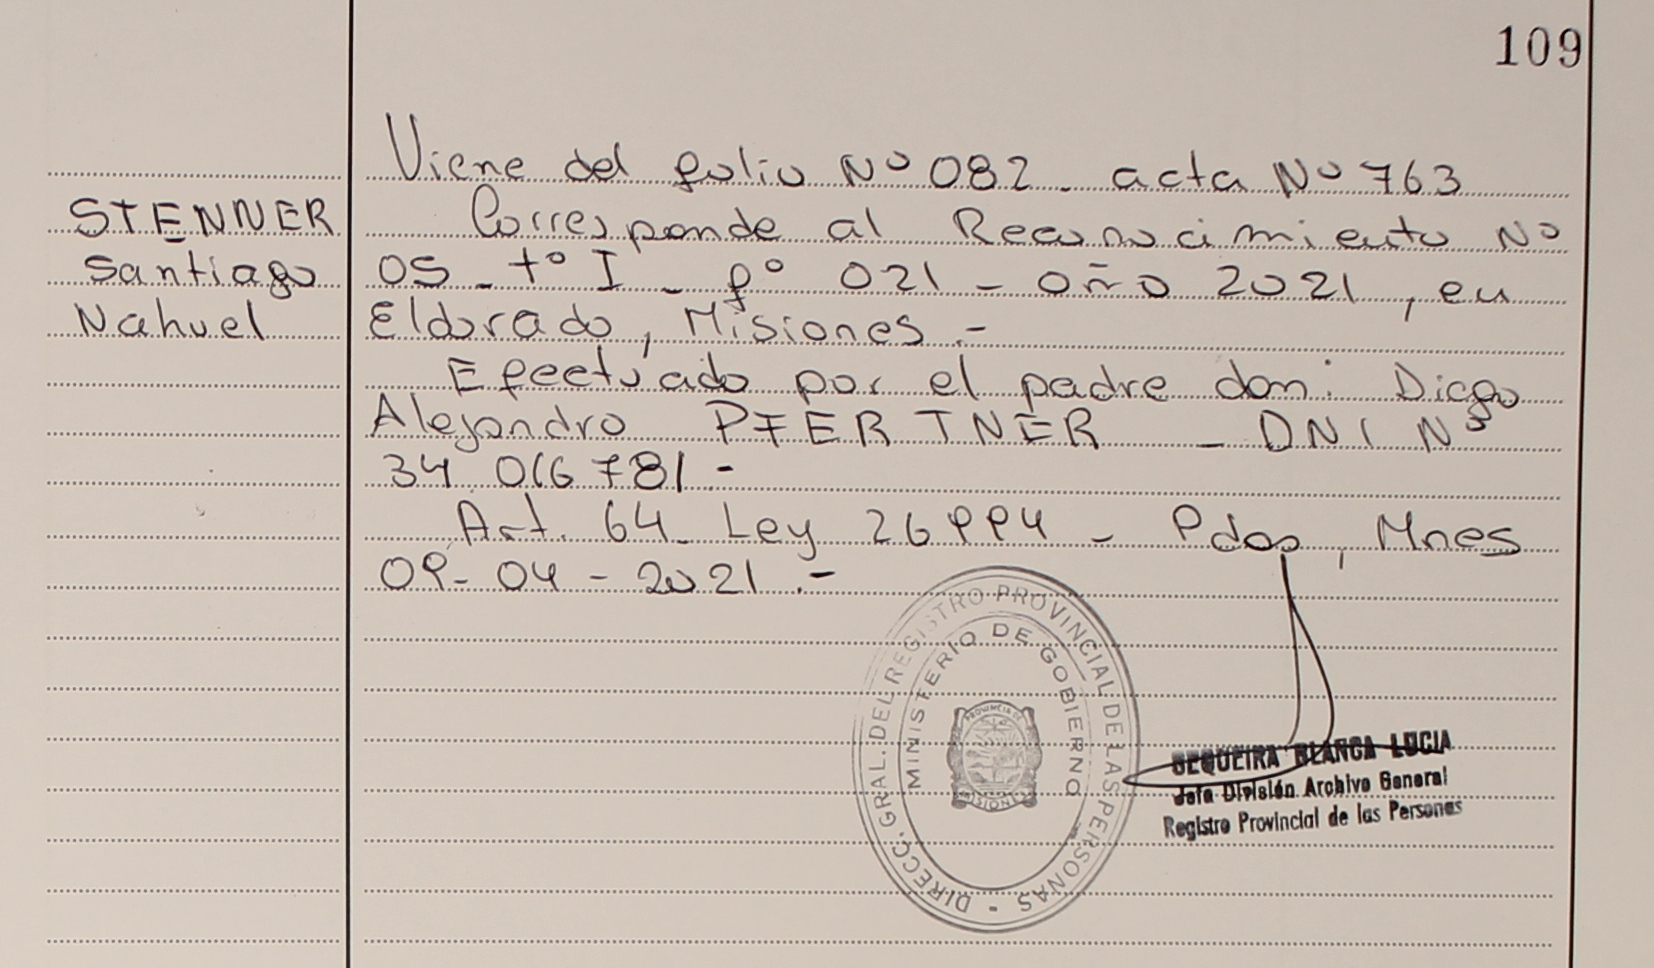 109
Viene del folio Nº 082 - acta Nº 763
STENNER
Santiago
Nahuel
Corresponde al Reconocimiento Nº
05 - tº I - fº 021 - año 2021, en
Eldorado, Misiones.-
Efectuado por el padre don: Diego
Alejandro PFERTNER - DNI Nº
34 016 781 -
Art. 64 Ley 26994 - Pdas, Mnes
09-04-2021.-
DIRECC. GRAL. DEL REGISTRO PROVINCIAL DE LAS PERSONAS -
MINISTERIO DE GOBIERNO
PROVINCIA DE
MISIONES
SEQUEIRA BLANCA LUCIA
Jefa División Archivo General
Registro Provincial de las Personas